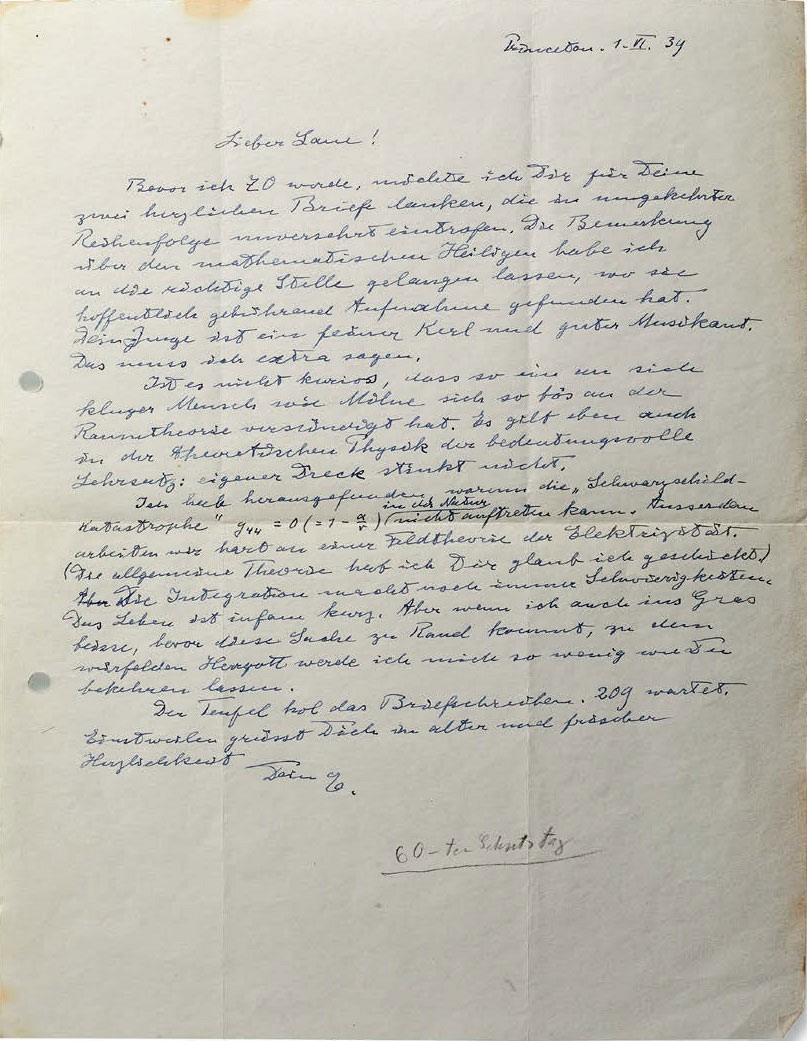 Princeton. 1.VI. 39
Lieber Laue!
Bevor ich 70 werde, möchte ich Dir für Deine
zwei herzlichen Briefe danken, die in umgekehrter
Reihenfolge unversehrt eintrafen. Die Bemerkung
über den mathematischen Heiligen habe ich
an die richtige Stelle gelangen lassen, wo sie
hoffentlich gebührend Aufnahme gefunden hat.
Dein Junge ist ein feiner Kerl und guter Musikant.
Das muss ich extra sagen.
Ist es nicht kurios, dass so ein an sich
kluger Mensch wie Milne sich so bös an der
Raumtheorie versündigt hat. Es gilt eben auch
in der theoretischen Physik der bedeutungsvolle
Lehrsatz: eigener Dreck stinkt nicht.
Ich hab herausgefunden, warum die „Schwarzschild-
in der Natur
Katastrophe" g₄₄ = 0 (= 1 - a/r) nicht auftreten kann. Ausserdem
arbeiten wir hart an einer Feldtheorie der Elektrizität.
(Die allgemeine Theorie hab ich Dir glaub ich geschickt.)
Aber Die Integration macht noch immer Schwierigkeiten.
Das Leben ist infam kurz. Aber wenn ich auch ins Gras
beisse, bevor diese Sache zu Rand kommt, zu dem
würfelden Herrgott werde ich mich so wenig wie Du
bekehren lassen.
Der Teufel hol das Briefschreiben. 209 wartet.
Einstweilen grüsst Dich in alter und frischer
Herzlichkeit
Dein E.
60-ter Geburtstag